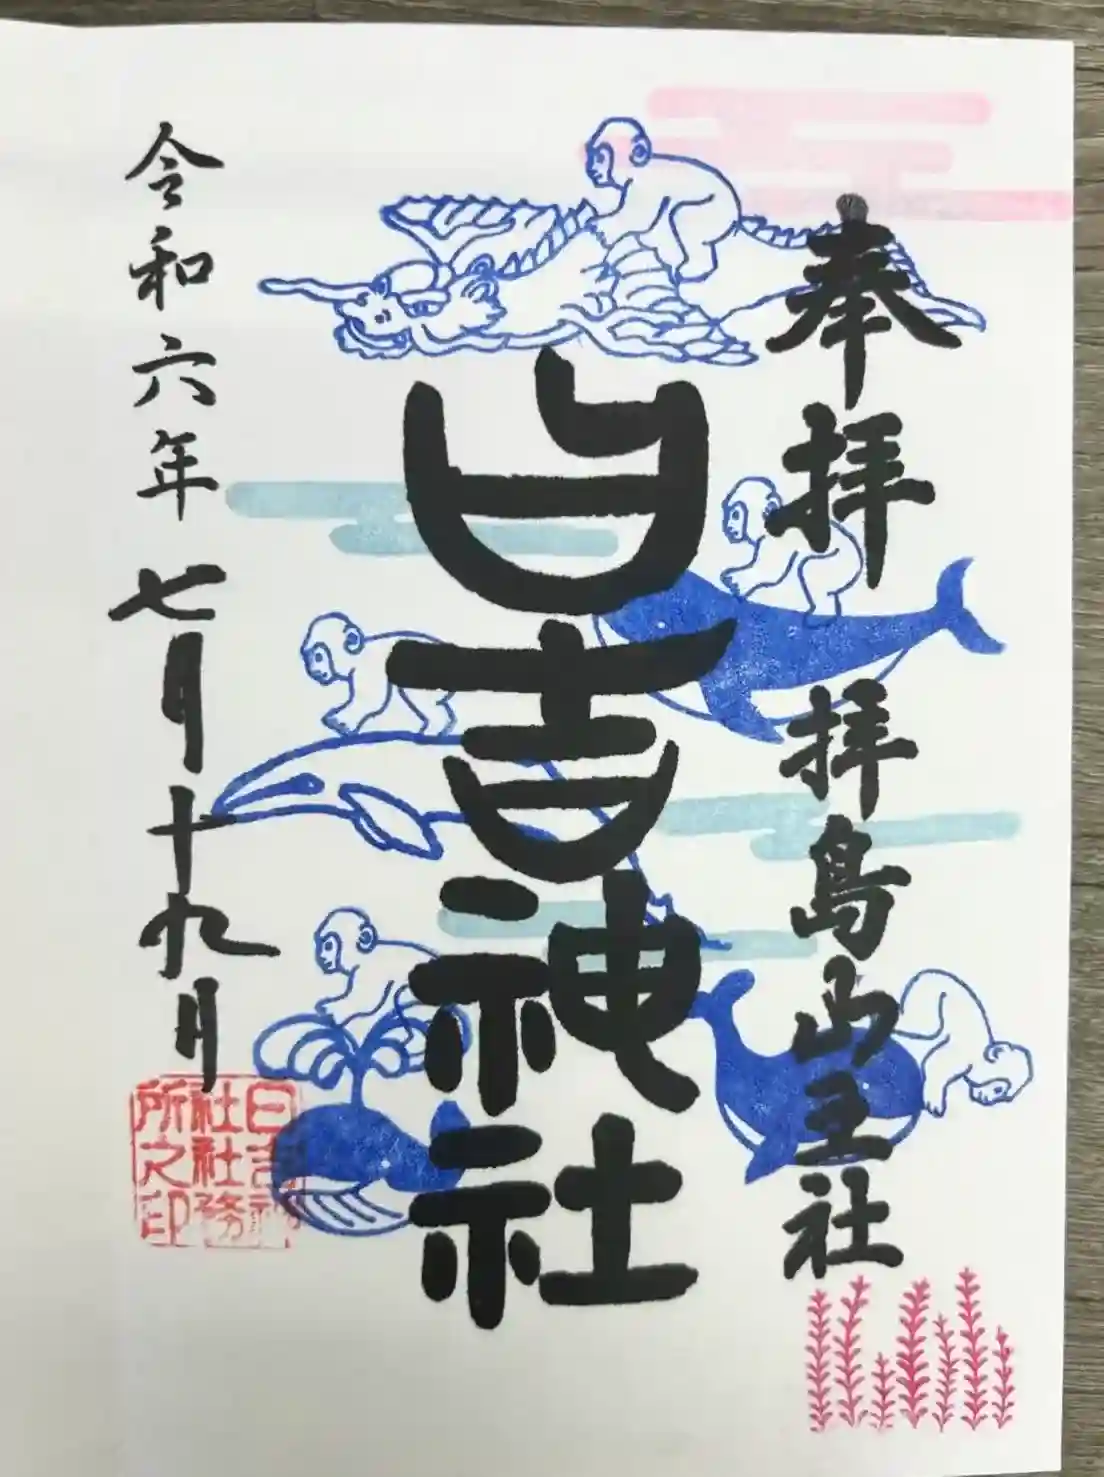 奉拝 拝島山王社
日吉神社
令和六年七月十九日
日吉神
社社務
所之印